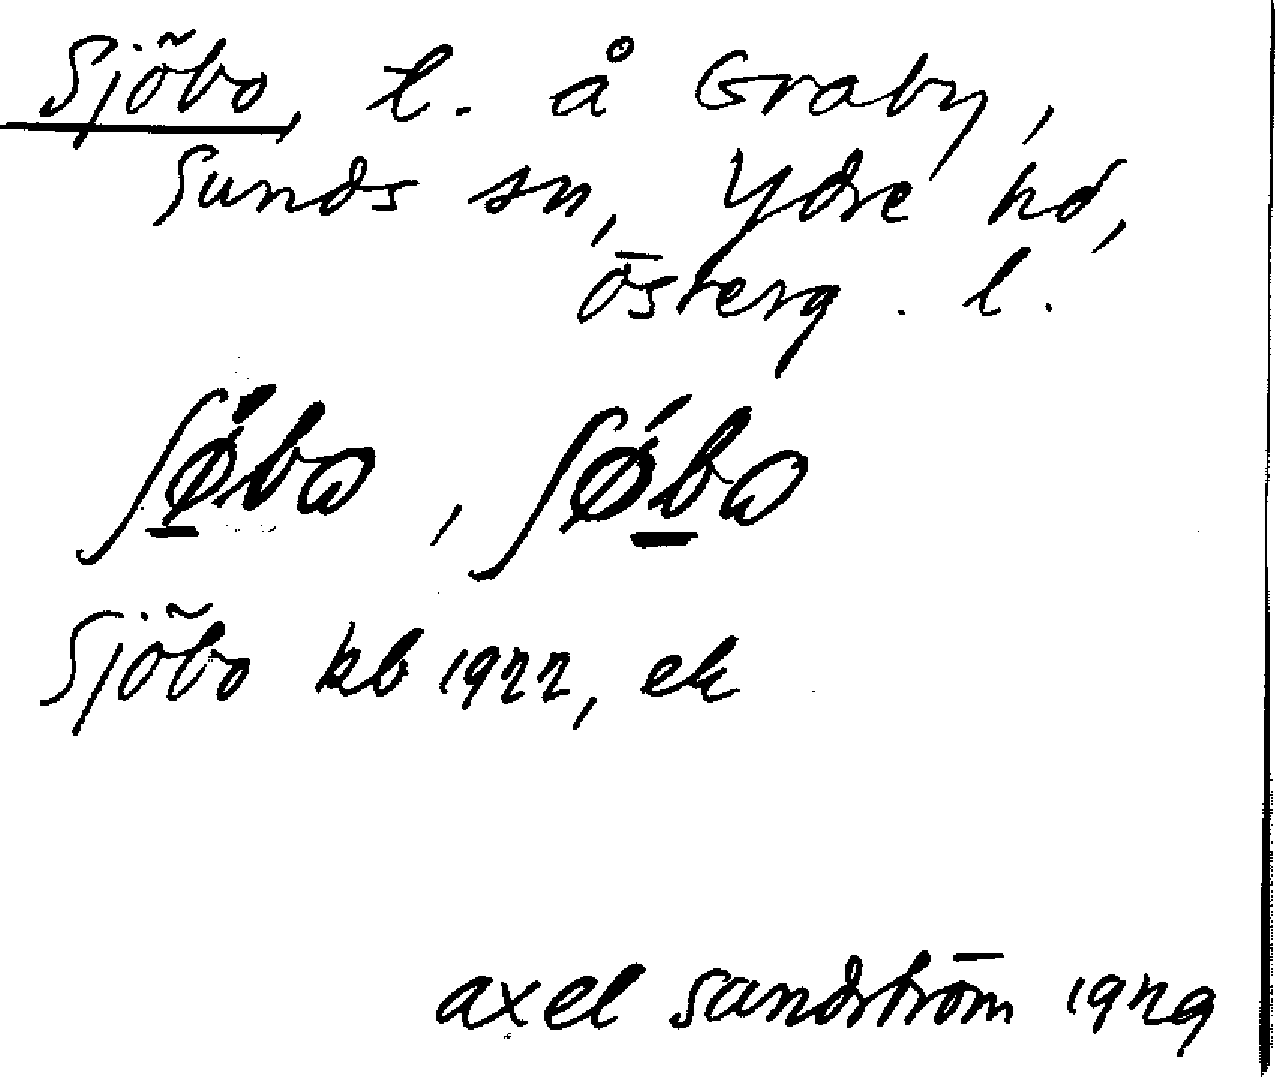 Sjöbo, l. å Graby,
Sunds sn, Ydre hd,
Österg. l.
ʃø̀bω, ʃǿbω
Sjöbo kb 1922, ek
Axel Sandström 1929